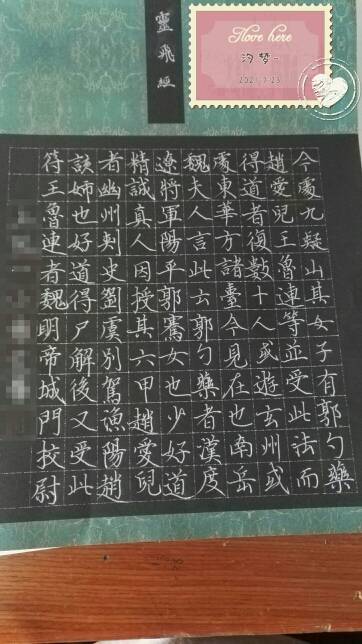 靈飛經
Ilove here
汐梦~
2021.7.23
今處九疑山其女子有郭勺藥
趙愛兒王魯連等並受此法而
得道者復數十人或遊玄州或
處東華方諸臺今見在也南岳
魏夫人言此云郭勺藥者漢度
遼將軍陽平郭騫女也少好道
精誠真人因授其六甲趙愛兒
者幽州刺史劉虞別駕漁陽趙
該姊也好道得尸解後又受此
符王魯連者魏明帝城門校尉